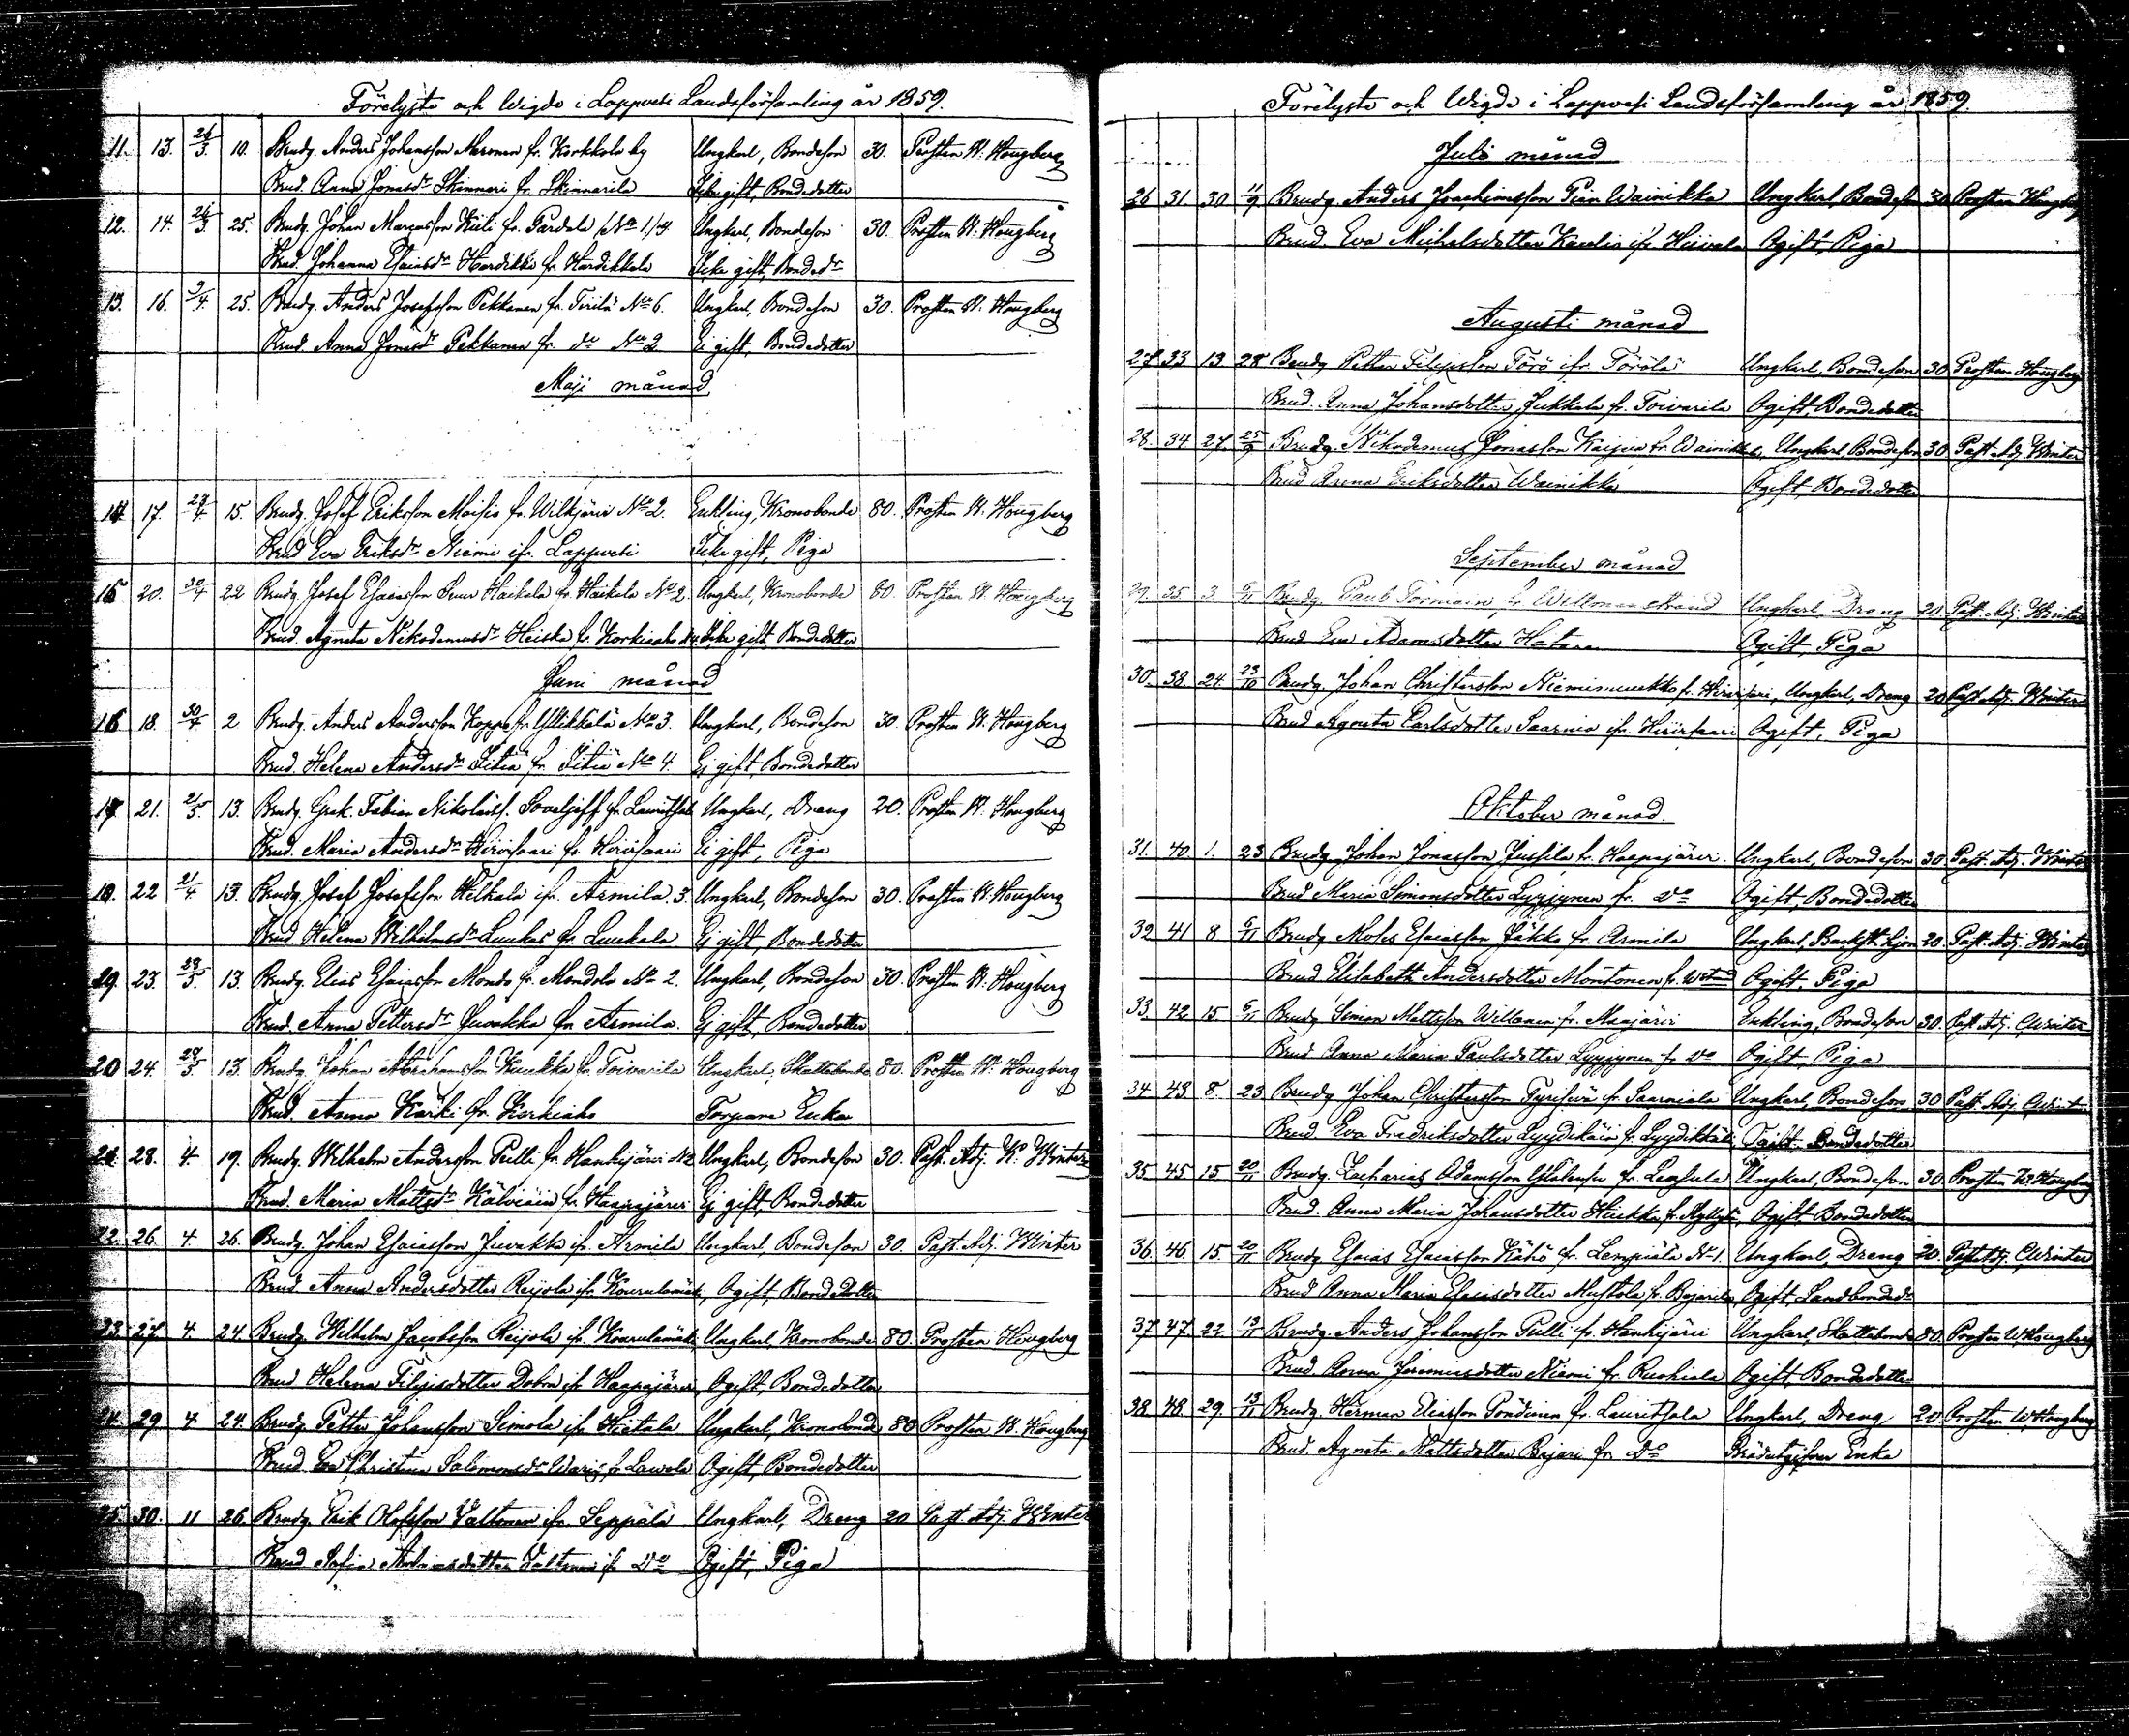 Förelyste och Wigde i Lappvesi Landsförsamling år 1859.
11. 13. 26/3. 10. Brudg. Anders Johansson fr. Korkkola by Ungkarl, Bondeson 30. Prosten W. Hougberg
Brud. Anna Jonasdr Skinnari fr. Skinnarila Icke gift, Bondedotter
12. 14. 26/3 25. Brudg. Johan Marcusson Kuli fr. Partala Ungkarl, Bondeson 30. Prosten W. Hougberg
Brud. Johanna Esaiasdr Hardikka fr. Hardikkala Icke gift, Bondedr
13. 16. 9/4 25. Brudg. Anders Josefsson Pekkanen fr. Tiriilä No 6. Ungkarl, Bondeson 30. Prosten W. Hougberg
Brud. Anna Jonasdr Pekkanen fr. do No 2 Ej gift, Bondedotter
Maji månad
14 17. 15. Brudg. Josef Eriksson Moisio fr. Wilkjärvi No 2. Enkling, Kronobonde 80. Prosten W. Hougberg
Brud Eva Eriksdr Niemi ifr. Lappvesi Icke gift, Piga
15 20. 30/4 22 Brudg. Josef Esaiasson Haikala fr. Haikala No 2 Ungkarl, Kronobonde 80. Prosten W. Hougberg
Brud. Agneta Nikodemusdr Heiska fr. Korkiaho Icke gift, Bondedotter
Juni månad
16 18. 30/4 2 Brudg. Anders Andersson Koppa fr. Yllikkälä No 3. Ungkarl, Bondeson 30. Prosten W. Hougberg
Brud. Helena Andersdr Itiä fr. Itiä No 4. Ej gift, Bondedotter
17 21. 21/5. 13. Brudg. Grek. Fabian Nikolaiss. fr. Lauritsala Ungkarl, Dräng 20. Prosten W. Hougberg
Brud. Maria Andersdr Hirvisaari fr. Hirvisaari Ej gift, Piga
22 21/4 13. Brudg. Josef Josefsson ifr. Armila. 3. Ungkarl, Bondeson 30. Prosten W. Hougberg
Brud. Helena Wilhelmsdr Luukas fr. Luukala Ej gift, Bondedotter
19. 23. 28/5. 13. Brudg. Elias Esaiasson Mondo fr. Mondola No 2. Ungkarl, Bondeson 30. Prosten W. Hougberg
Brud. Anna Pettersdr Juvakka fr. Armila. Ej gift, Bondedotter
20 24. 28/5 13. Brudg. Johan Abrahamsson Kuukka fr. Toivarila Ungkarl, Skattebonde 80. Prosten W. Hougberg
Brud. Anna Karki fr. Korkiaho Torpare Enka
21. 28. 4. 19. Brudg. Wilhelm Andersson Pulli fr. Hanhijärvi No 2 Ungkarl, Bondeson 30. Past. Adj. K. Winter
Brud. Maria Mattsdr Kälviäin fr. Haapajärvi Ej gift, Bondedotter
22. 26. 4. 26. Brudg. Johan Esaiasson Juvakka ifr. Armila Ungkarl, Bondeson 30. Past. Adj. Winter
Brud. Anna Andersdotter Reijola ifr. Kourulamäki, Ogift, Bondedotter
23. 27. 4. 24. Brudg. Wilhelm Jacobsson Reijola ifr. Kourulamäki Ungkarl, Kronobonde 80 Prosten Hougberg
Brud Helena Filipsdotter ifr. Haapajärvi Ogift, Bondedotter
24. 29 4. 24. Brudg. Petter Johansson Simola ifr. Hietala Ungkarl, Kronobonde 80 Prosten W. Hougberg
Brud. Eva Christina Salomonsdr Waris, fr. Lavola Ogift, Bondedotter
25 30. 11 26. Brudg. Erik Olofsson Valtonen ifr. Seppälä Ungkarl, Dreng 20 Past. Adj. Winter
Brud Sofia Valtonen ifr. Do Ogift, Piga
Förelyste och Wigde i Lappvesi Landsförsamling år 1859.
Juli månad
26 31 30 11/9 Brudg. Anders Joachimsson Pien Wainikka Ungkarl, Bondeson 30 Prosten Hougberg
Brud. Eva Michelsdotter ifr. Ogift, Piga
Augusti månad
27 33 13 28 Brudg. Petter Filipsson Törö ifr. Törölä Ungkarl, Bondeson 30 Prosten Hougberg
Brud. Anna Johansdotter Jukkala fr. Toivarila Ogift, Bondedotter
28. 34 27. 25/9 Brudg. Nikodemus Jonasson fr. Wainikkala, Ungkarl, Bondeson 30 Past. Adj. Winter
Brud Anna Eriksdotter Wainikka Ogift, Bondedotter
September månad
29. 35 3. 6/11 Brudg. Paul Tormain fr. Willmanstrand Ungkarl, Dreng 20 Past. Adj. Winter
Brud. Eva Adamsdotter Ogift, Piga
30. 38. 24. 23/10 Brudg. Johan Christersson fr. Hirvisaari, Ungkarl, Dreng 20 Past. Adj. Winter
Brud Agneta Carlsdotter Saarnio ifr. Hirvisaari Ogift, Piga
Oktober månad.
31. 40. 1. 23 Brudg. Johan Jonasson Jussila fr. Haapajärvi. Ungkarl, Bondeson 30 Past. Adj. Winter
Brud Maria Simonsdotter Lyyjynen fr. Do Ogift, Bondedotter
32 41 8 6/11 Brudg. Moses Esaiasson Jäkko fr. Armila Ungkarl, 20 Past. Adj. Winter
Brud Elisabeth Andersdotter Montonen fr. Ogift Piga
33. 42 15 6/11 Brudg. Simon Mattsson Willanen fr. Enkling, Bondeson 30. Past. Adj. Winter
Brud Anna Maria Paulsdotter Lyyjynen fr Do Ogift, Piga
34. 43 8. 23 Brudg. Johan Christersson fr. Saarniala Ungkarl, Bondeson 30 Past. Adj. Winter
Brud. Eva Fredriksdotter Lyydikäin fr. Ogift. Bondedotter
35 45 15 20/11 Brudg. Zacharias Adamsson fr. Ungkarl, Bondeson 30. Prosten W. Hougberg
Brud. Anna Maria Johansdotter fr. Ogift Bondedotter
36. 46. 15 20/11 Brudg. Esaias Esaiasson Kähö fr. Lempiälä No 1. Ungkarl, Dreng 20. Past. Adj. Winter
Brud Anna Maria Esaiasdotter Mustola fr. Ogift, Landbondedr
37 47 22 13/11 Brudg. Anders Johansson Pulli fr. Hanhijärvi Ungkarl, Skattebonde 80. Prosten W. Hougberg
Brud Anna Jeremiasdotter Niemi fr. Ruohiala Ogift, Bondedotter
38 48. 29. 13/11 Brudg. Herman Eliasson Pöndinen fr. Lauritsala Ungkarl, Dreng 20 Prosten W. Hougberg
Brud Agneta Mattsdotter fr. Do Enka